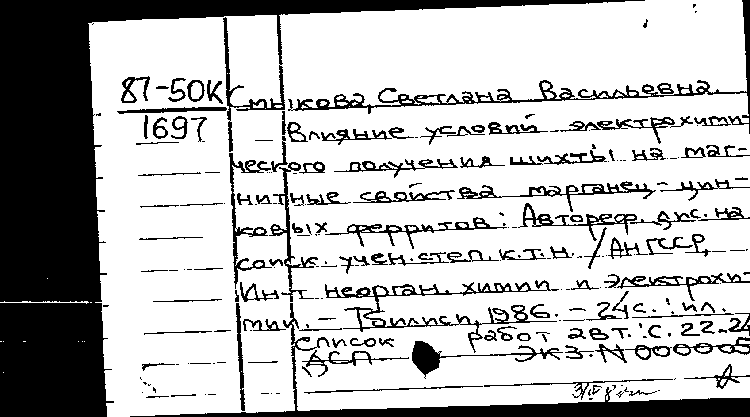 87-50К Смыкова, Светлана Васильевна.
1697 Влияние условий электрохими-
ческого получения шихты на маг-
нитные свойства марганец-цин-
ковых ферритов: Автореф. дис. на
соиск. учен. степ. к.т.н. / АН ГССР,
Ин-т неорган. химии и электрохи-
мии. - Тбилиси, 1986. - 24 с.: ил.
Список работ авт.: С. 22-24
ДСП Экз. N 000005